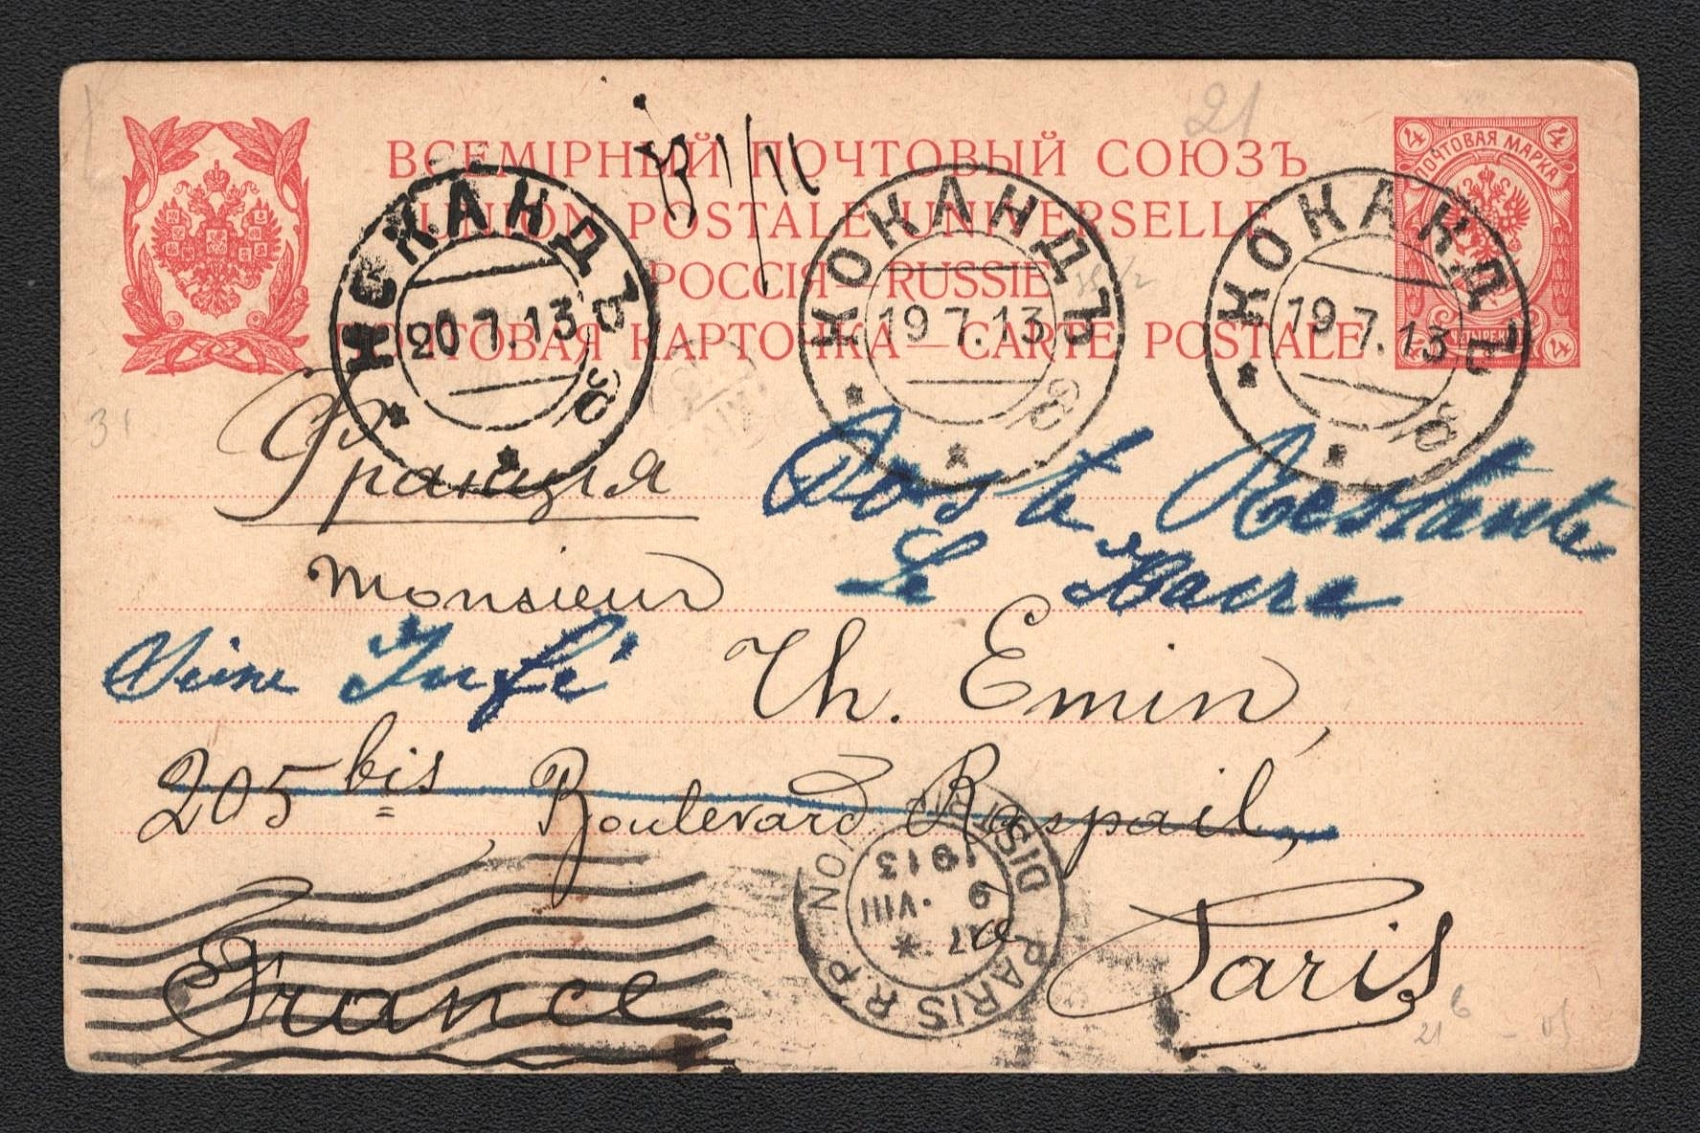 21
ВСЕМІРНЫЙ ПОЧТОВЫЙ СОЮЗЪ
UNION POSTALE UNIVERSELLE
РОССІЯ—RUSSIE
ПОЧТОВАЯ КАРТОЧКА—CARTE POSTALE
4 4
ПОЧТОВАЯ МАРКА
4 4
КОКАНДЪ
20 7.13
КОКАНДЪ
19 7.13
КОКАНДЪ
19 7.13
31
Франція
Poste Restante
Le Havre
Monsieur
Seine Infé
Th. Emin,
205 bis Boulevard Raspail,
PARIS R.P. DISTRIBUTION
9 VIII
1913
Paris
France
21